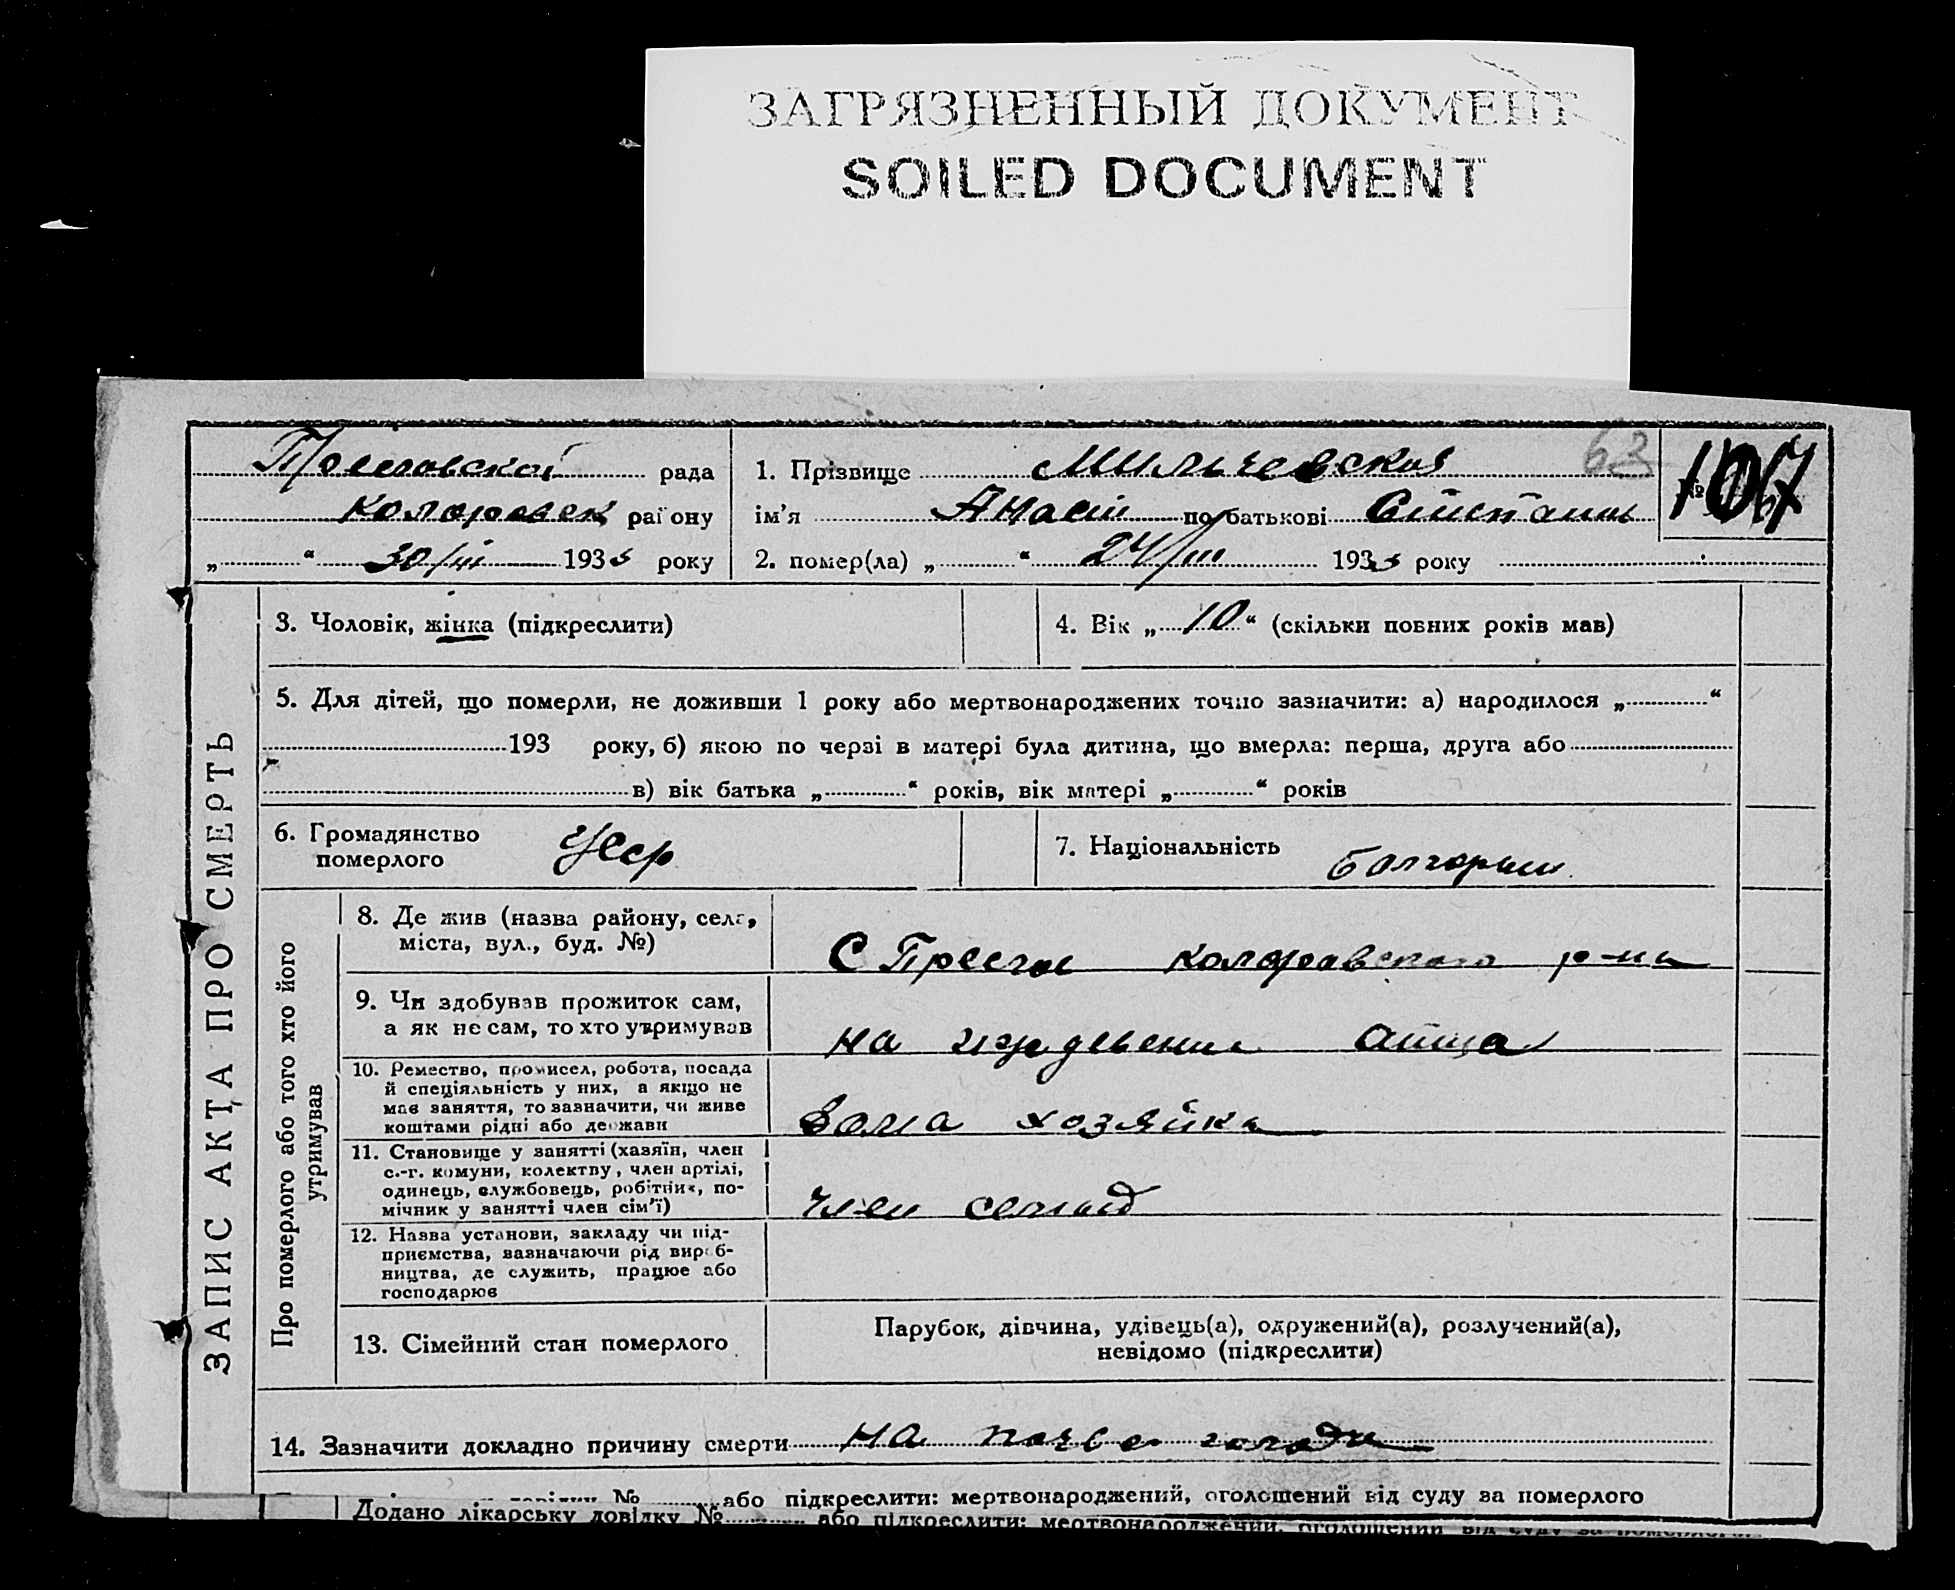 ЗАГРЯЗНЕННЫЙ ДОКУМЕНТ
SOILED DOCUMENT
63
Преславской рада
Коларовск району
„ “ 30/III 1933 року
1. Прізвище Мильчевская
ім’я по батькові
2. помер(ла) „ “ 24/III 1933 року
№ 107
ЗАПИС АКТА ПРО СМЕРТЬ
3. Чоловік, жінка (підкреслити)
4. Вік „ 10 “ (скільки повних років мав)
5. Для дітей, що померли, не доживши 1 року або мертвонароджених точно зазначити: а) народилося „ “
193 року, б) якою по черзі в матері була дитина, що вмерла: перша, друга або
в) вік батька „ “ років, вік матері „ “ років
6. Громадянство
померлого
Усср
7. Національність
Про померлого або того хто його
утримував
8. Де жив (назва району, села,
міста, вул., буд. №)
С Преслав Коларовского р-на
9. Чи здобував прожиток сам,
а як не сам, то хто утримував
на иждевении атца
10. Ремество, промисел, робота, посада
й спеціяльність у них, а якщо не
має заняття, то зазначити, чи живе
коштами рідні або держави
дома хозяйка
11. Становище у занятті (хазяїн, член
с.-г. комуни, колективу, член артілі,
одинець, службовець, робітник, по-
мічник у занятті член сім’ї)
член семьи
12. Назва установи, закладу чи під-
приємства, зазначаючи рід вироб-
ництва, де служить, працює або
господарює
13. Сімейний стан померлого
Парубок, дівчина, удівець(а), одружений(а), розлучений(а),
невідомо (підкреслити)
14. Зазначити докладно причину смерти на почве голода
довідку № або підкреслити: мертвонароджений, оголошений від суду за померлого
Додано лікарську довідку № або підкреслити: мертвонароджений, оголошений від суду за померлого